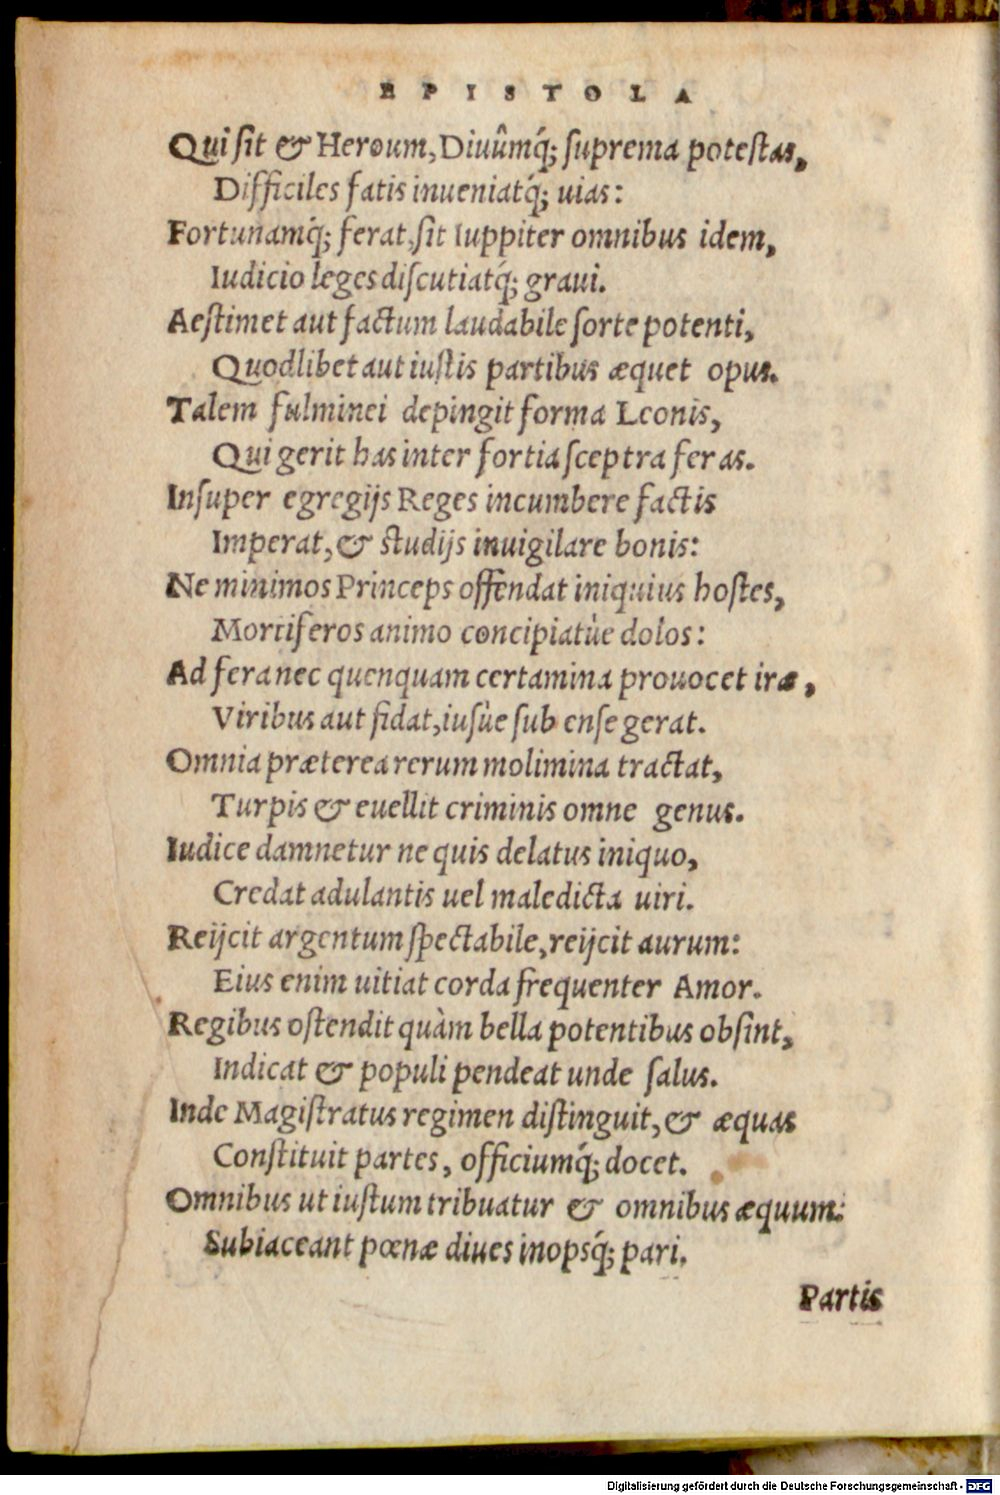 EPISTOLA
Qui sit & Heroum, Diuûmq́; suprema potestas,
Difficiles fatis inueniatq́; uias:
Fortunamq́; ferat, sit Iuppiter omnibus idem,
Iudicio leges discutiatq́; graui.
Aestimet aut factum laudabile sorte potenti,
Quodlibet aut iustis partibus æquet opus.
Talem fulminei depingit forma Leonis,
Qui gerit has inter fortia sceptra feras.
Insuper egregijs Reges incumbere factis
Imperat, & studijs inuigilare bonis:
Ne minimos Princeps offendat iniquius hostes,
Mortiferos animo concipiatùe dolos:
Ad fera nec quenquam certamina prouocet iræ,
Viribus aut fidat, iusùe sub ense gerat.
Omnia præterea rerum molimina tractat,
Turpis & euellit criminis omne genus.
Iudice damnetur ne quis delatus iniquo,
Credat adulantis uel maledicta uiri.
Reijcit argentum spectabile, reijcit aurum:
Eius enim uitiat corda frequenter Amor.
Regibus ostendit quàm bella potentibus obsint,
Indicat & populi pendeat unde salus.
Inde Magistratus regimen distinguit, & æquas
Constituit partes, officiumq́; docet.
Omnibus ut iustum tribuatur & omnibus æquum:
Subiaceant pœnæ diues inopsq́; pari.
Partis
Digitalisierung gefördert durch die Deutsche Forschungsgemeinschaft - DFG